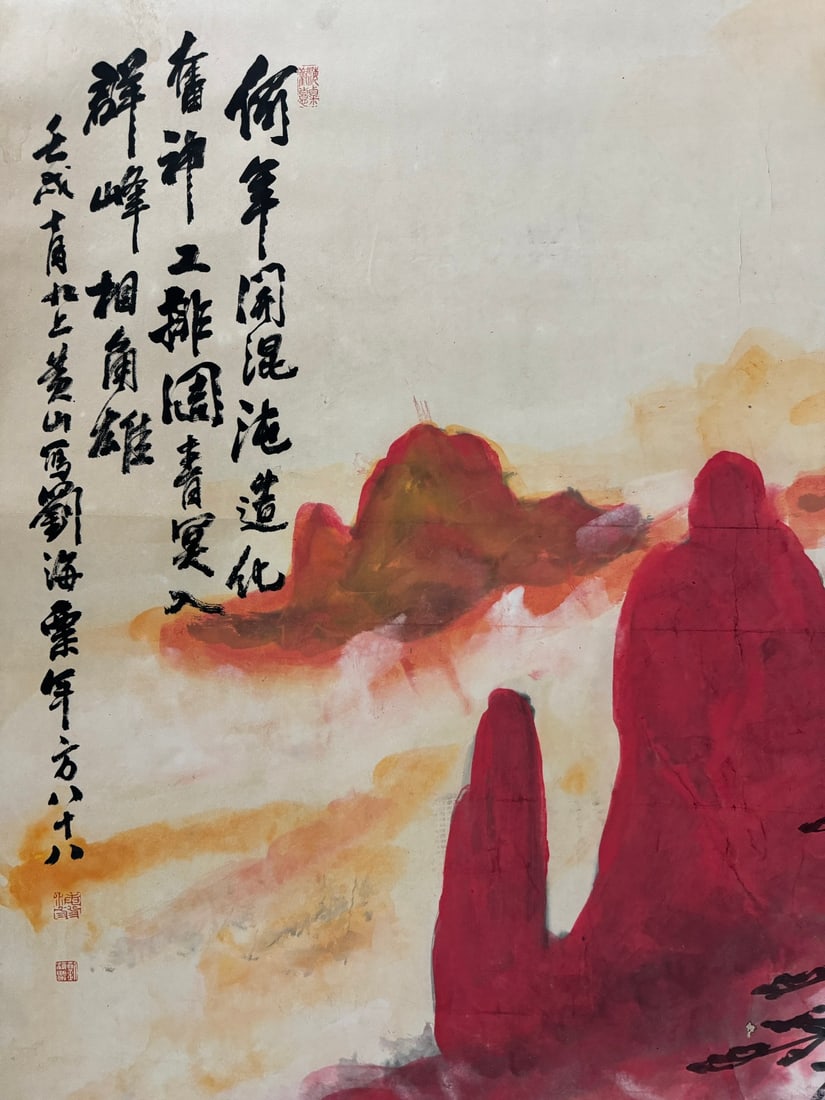 何年開混沌造化
奮神工排闥青冥入
群峰相角雄
壬戌十月九上黃山寫劉海粟年方八十八